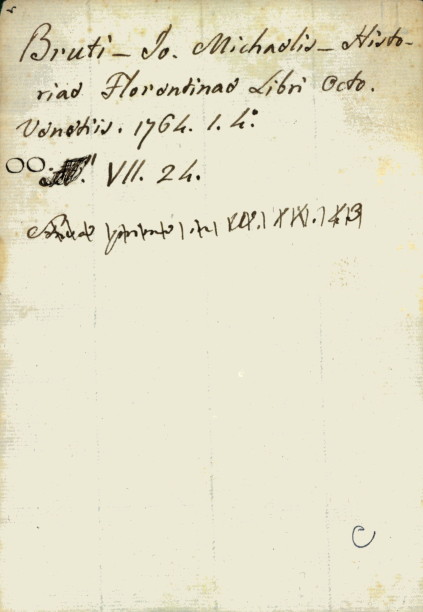 Bruti - Jo. Michaelis - Histo-
riae Florentinae Libri Octo.
Venetiis. 1764. 1. 4.º
OO. VII. 24.
C